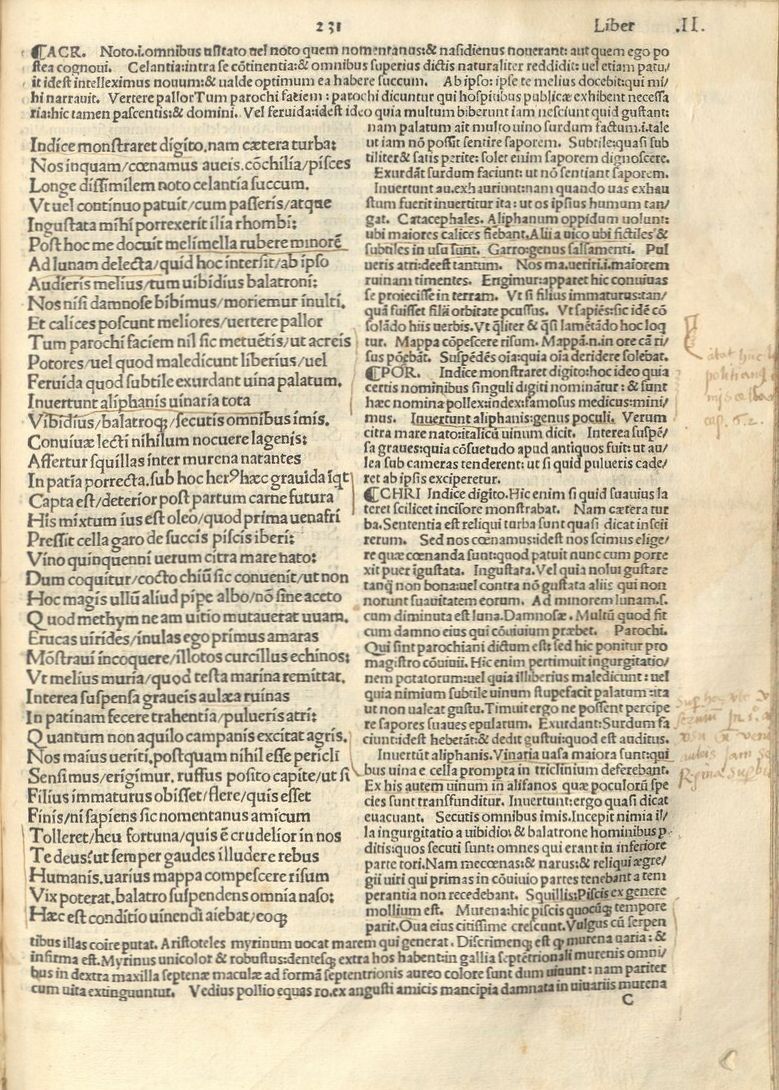 231 Liber .II.
¶ACR. Noto.i.omnibus usitato uel noto quem nomentanus:& nasidienus nouerant: aut quem ego po
stea cognoui. Celantia:intra se cõtinentia:& omnibus superius dictis naturaliter reddidit: uel etiam patu/
it idest intelleximus nouum:& ualde optimum ea habere succum. Ab ipso: ipse te melius docebit:qui mi/
hi narrauit. Vertere pallorTum parochi faciem: parochi dicuntur qui hospitibus publicæ exhibent necessa
ria:hic tamen pascentis:& domini. Vel feruida:idest ideo quia multum biberunt iam nesciunt quid gustant:
Indice monstraret digito.nam cætera turba:
Nos inquam/cœnamus aueis.cõchilia/pisces
Longe dissimilem noto celantia succum.
Vt uel continuo patuit/cum passeris/atque
Ingustata mihi porrexerit ilia rhombi:
Post hoc me docuit melimella rubere minorẽ
Ad lunam delecta/quid hoc intersit/ab ipso
Audieris melius/tum uibidius balatroni:
Nos nisi damnose bibimus/moriemur inulti.
Et calices poscunt meliores/uertere pallor
Tum parochi faciem nil sic metuẽtis/ut acreis
Potores/uel quod maledicunt liberius/uel
Feruida quod subtile exurdant uina palatum.
Inuertunt aliphanis uinaria tota
Vibidius/balatroqꝫ/secutis omnibus imis.
Conuiuæ lecti nihilum nocuere lagenis:
Affertur squillas inter murena natantes
In patĩa porrecta.sub hoc herꝰ hæc grauida ĩqt
Capta est/deterior post partum carne futura
His mixtum ius est oleo/quod prima uenafri
Pressit cella garo de succis piscis iberi:
Vino quinquenni uerum citra mare nato:
Dum coquitur/cocto chiũ sic conuenit/ut non
Hoc magis ullũ aliud pipe albo/nõ sine aceto
Quod methym ne am uitio mutauerat uuam.
Erucas uirides/inulas ego primus amaras
Mõstraui incoquere/illotos curcillus echinos:
Vt melius muria/quod testa marina remittat.
Interea suspensa graueis aulæa ruinas
In patinam fecere trahentia/pulueris atri:
Quantum non aquilo campanis excitat agris.
Nos maius ueriti.postquam nihil esse pericli
Sensimus/erigimur. ruffus posito capite/ut si
Filius immaturus obisset/flere/quis esset
Finis/ni sapiens sic nomentanus amicum
Tolleret/heu fortuna/quis ẽ crudelior in nos
Te deus?ut semper gaudes illudere rebus
Humanis.uarius mappa compescere risum
Vix poterat.balatro suspendens omnia naso:
Hæc est conditio uiuendi aiebat/eoqꝫ
nam palatum ait multo uino surdum factum.i.tale
ut iam nõ possit sentire saporem. Subtile:quasi sub
tiliter:& satis perite: solet enim saporem dignoscere.
Exurdãt surdum faciunt: ut nõ sentiant saporem.
Inuertunt au.exhauriunt:nam quando uas exhau
stum fuerit inuertitur ita: ut os ipsius humum tan/
gat. Catacephales. Aliphanum oppidum uolunt:
ubi maiores calices fiebant.Alii a uico ubi fictiles &
subtiles in usu sunt. Garro:genus salsamenti. Pul
ueris atri:deest tantum. Nos ma.ueriti.i.maiorem
ruinam timentes. Erigimur:apparet hic conuiuas
se proiecisse in terram. Vt si filius immaturus:tan/
quã fuisset filii orbitate pcussus. Vt sapiẽs:sic idẽ cõ
solãdo hiis uerbis.Vt qliter & qsi lamẽtãdo hoc loq
tur. Mappa cõpescere risum. Mappã.n.in ore cã ri/
sus põebãt. Suspẽdẽs oĩa:quia oĩa deridere solebat.
¶POR. Indice monstraret digito:hoc ideo quia
certis nominibus singuli digiti nominãtur: & sunt
hæc nomina pollex:index:famosus medicus:mini/
mus. Inuertunt aliphanis:genus poculi. Verum
citra mare nato:italicũ uinum dicit. Interea suspẽ/
sa graues:quia cõsuetudo apud antiquos fuit: ut au/
lea sub cameras tenderent: ut si quid pulueris cade/
ret ab ipsis exciperetur.
¶CHRI Indice digito.Hic enim si quid suauius la
teret scilicet incisore monstrabat. Nam cætera tur
ba.Sententia est reliqui turba sunt quasi dicat inscii
rerum. Sed nos cœnamus:idest nos scimus elige/
re quæ cœnanda sunt:quod patuit nunc cum porre
xit puer ĩgustata. Ingustata.Vel quia nolui gustare
tanq̃ non bona:uel contra nõ gustata aliis qui non
norunt suauitatem eorum. Ad minorem lunam.s.
cum diminuta est luna.Damnosæ. Multũ quod fit
cum damno eius qui cõuiuium præbet. Parochi.
Qui sint parochiani dictum est: sed hic ponitur pro
magistro cõuiuii. Hic enim pertimuit ingurgitatio/
nem potatorum:uel quia illiberius maledicunt :uel
quia nimium subtile uinum stupefacit palatum :ita
ut non ualeat gustu.Timuit ergo ne possent percipe
re sapores suaues epulatum. Exurdant:Surdum fa
ciunt:idest hebetãt:& dedit gustui:quod est auditus.
Inuertũt aliphanis.Vinaria uasa maiora sunt:qui
bus uina e cella prompta in triclinium deferebant.
Ex his autem uinum in alifanos quæ poculorũ spe
cies sunt transfunditur. Inuertunt:ergo quasi dicat
euacuant. Secutis omnibus imis.Incepit nimia il/
la ingurgitatio a uibidio: & balatrone hominibus p
ditis:quos secuti sunt: omnes qui erant in inferiore
parte tori.Nam mecœnas:& narus:& reliqui ægre/
gii uiti qui primas in cõuiuio partes tenebant a tem
perantia non recedebant. Squillis:Piscis ex genere
mollium est. Murena:hic piscis quocũqꝫ tempore
parit.Oua eius citissime crescunt.Vulgus cũ serpen
tibus illas coire putat. Aristoteles myrinum uocat marem qui generat. Discrimenqꝫ est q murena uaria: &
infirma est.Myrinus unicolor & robustus:dentesqꝫ extra hos habent:in gallia septẽtrionali murenis omni/
bus in dextra maxilla septenæ maculæ ad formã septentrionis aureo colore sunt dum uiuunt: nam pariter
cum uita extinguuntur. Vedius pollio equas ro.ex angusti amicis mancipia damnata in uiuariis murena
C